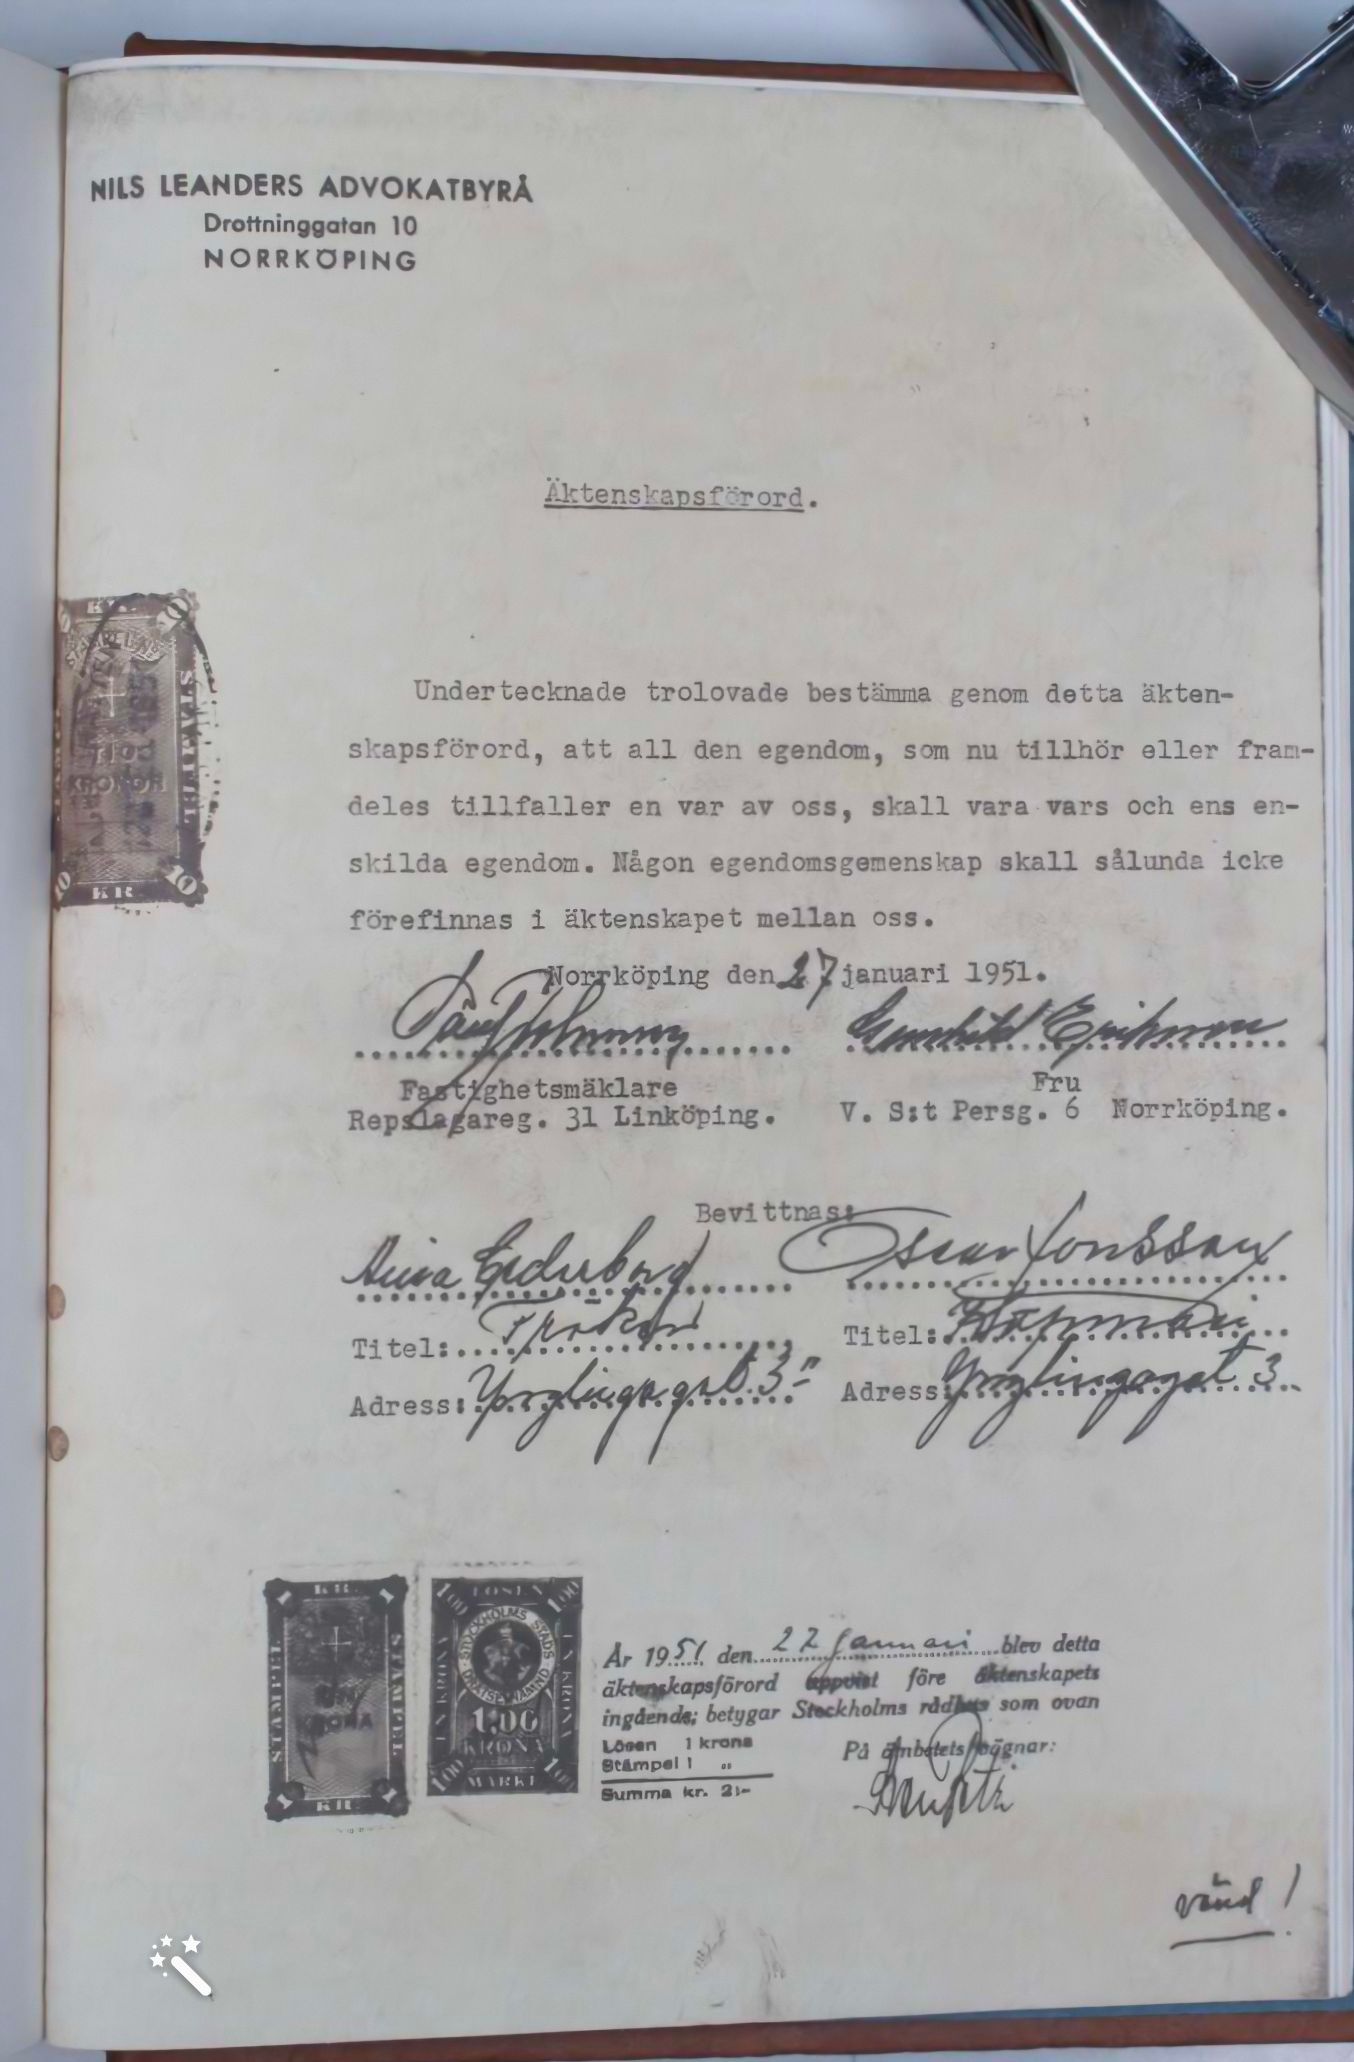 NILS LEANDERS ADVOKATBYRÅ
Drottninggatan 10
NORRKÖPING
Äktenskapsförord.
Undertecknade trolovade bestämma genom detta äkten-
skapsförord, att all den egendom, som nu tillhör eller fram-
deles tillfaller en var av oss, skall vara vars och ens en-
skilda egendom. Någon egendomsgemenskap skall sålunda icke
förefinnas i äktenskapet mellan oss.
Norrköping den 27 januari 1951.
Fastighetsmäklare
Repslagareg. 31 Linköping.
Fru
V. S:t Persg. 6 Norrköping.
Bevittnas:
Anna Cederborg
Oscar Jonsson
Titel: Fröken
Titel: Köpman
Adress: Ynglingagat. 3
Adress: Ynglingagat 3
KR.
TIO
KRONOR
STÄMPEL
10 KR. 10
1 KR. 1
STÄMPEL
STÄMPEL
KRONA
1 KR. 1
1,00 LÖSEN 1,00
STOCKHOLMS STADS
EN KRONA
EN KRONA
1,00
KRONA
MÄRKE
År 1951 den 27 januari blev detta
äktenskapsförord uppvist före äktenskapets
ingående; betygar Stockholms rådhus som ovan
Lösen 1 krona
Stämpel 1 "
Summa kr. 2:-
På ämbetets vägnar:
vänd!